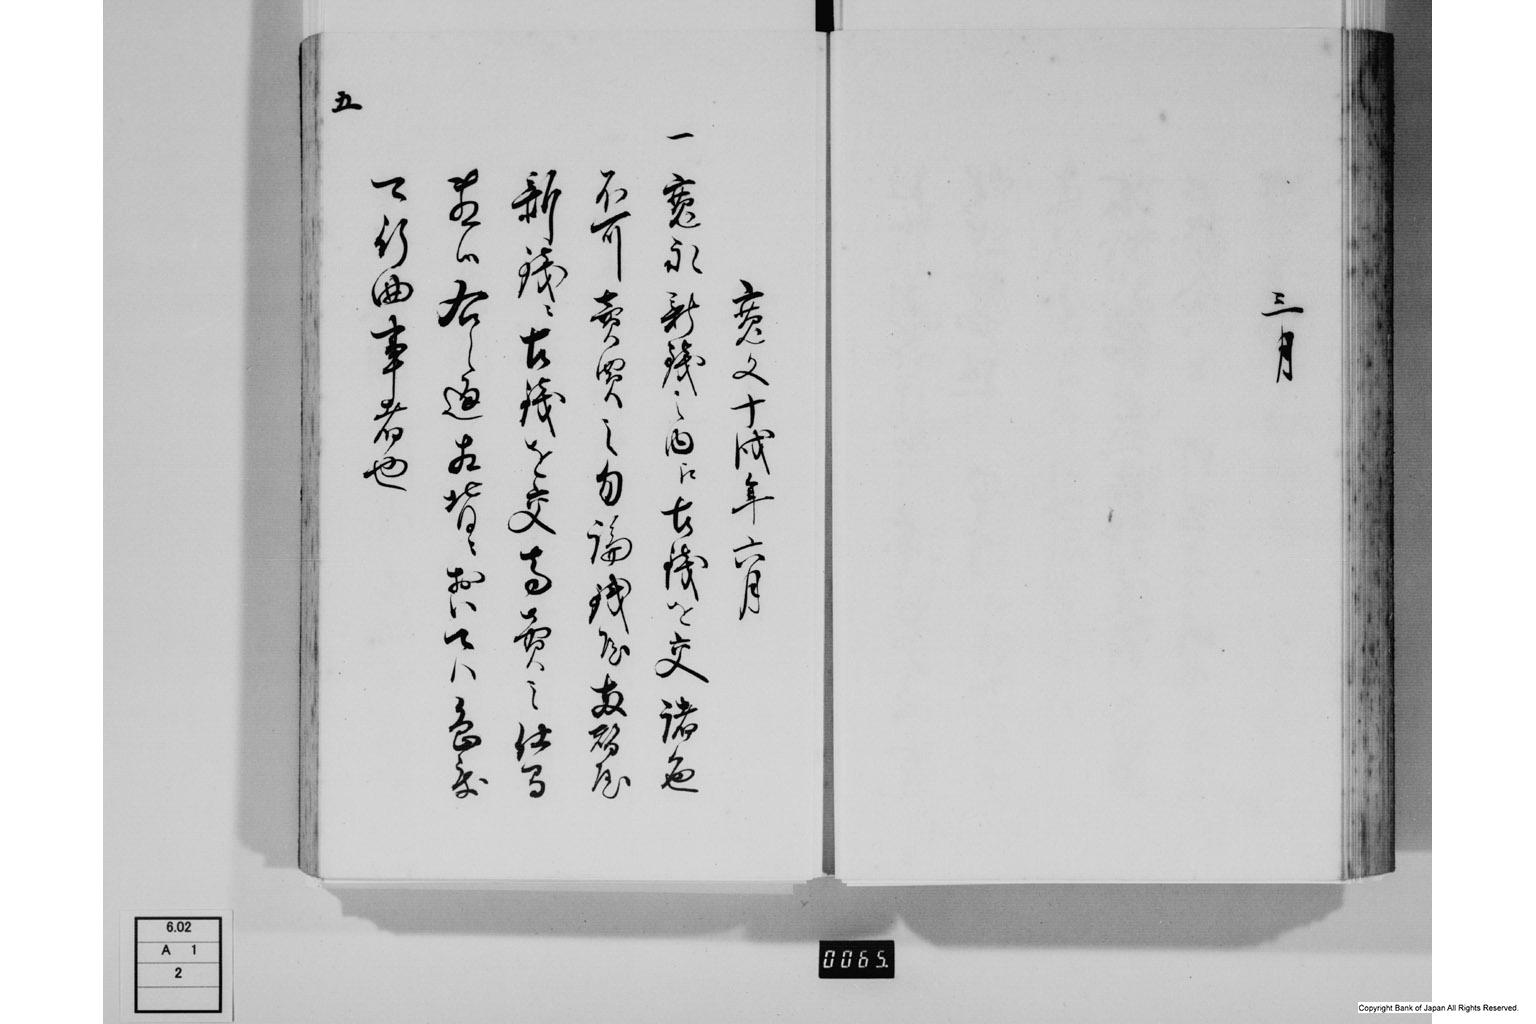 三月
寛文十戌年六月
一寛永新銭之内江古銭を交諸色
不可売買之勿論銭屋両替屋
新銭ニ古銭を交高売之仕間
敷候右之通相背ニおゐてハ急度
可行曲事者也
五
6.02
A 1
2
0065.
Copyright Bank of Japan All Rights Reserved.